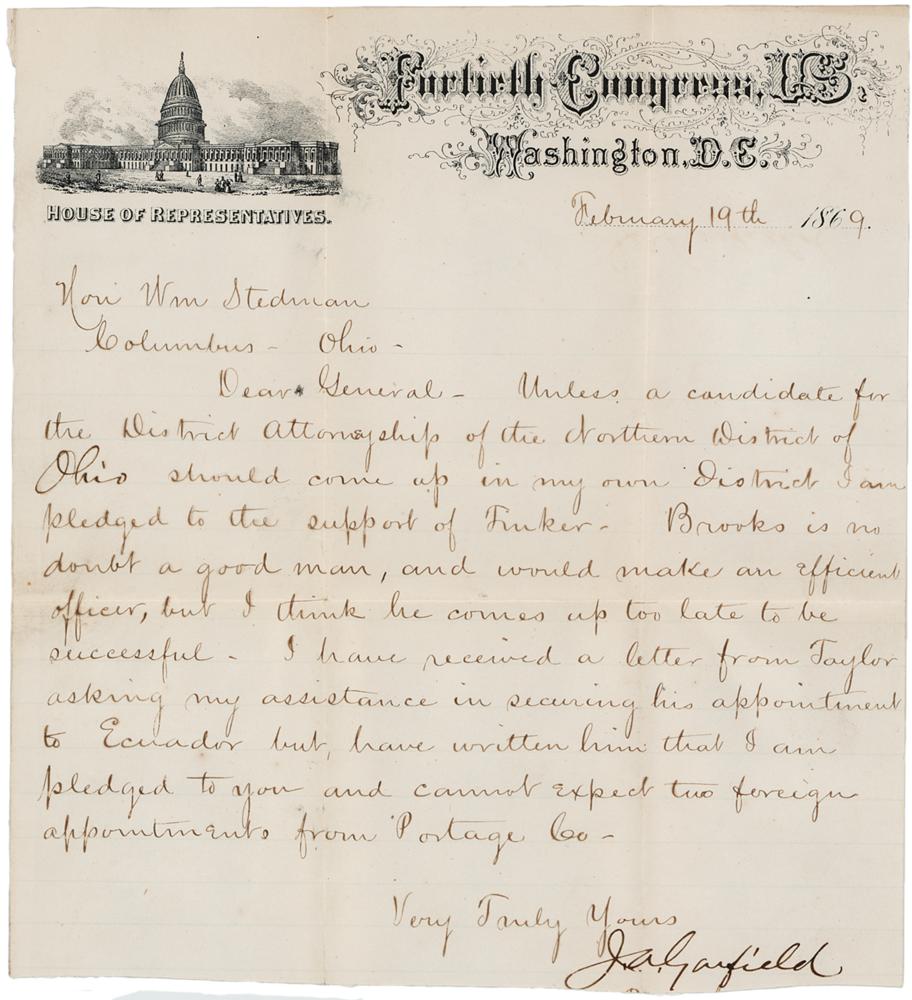 Fortieth Congress, U.S.
Washington, D.C.
HOUSE OF REPRESENTATIVES.
February 19th 1869.
Hon Wm Stedman
Columbus - Ohio -
Dear General - Unless a candidate for
the District Attorneyship of the Northern District of
Ohio should come up in my own District I am
pledged to the support of Tinker - Brooks is no
doubt a good man, and would make an efficient
officer, but I think he comes up too late to be
successful - I have received a letter from Taylor
asking my assistance in securing his appointment
to Ecuador but, have written him that I am
pledged to you and cannot expect two foreign
appointments from Portage Co -
Very Truly Yours
J.A. Garfield